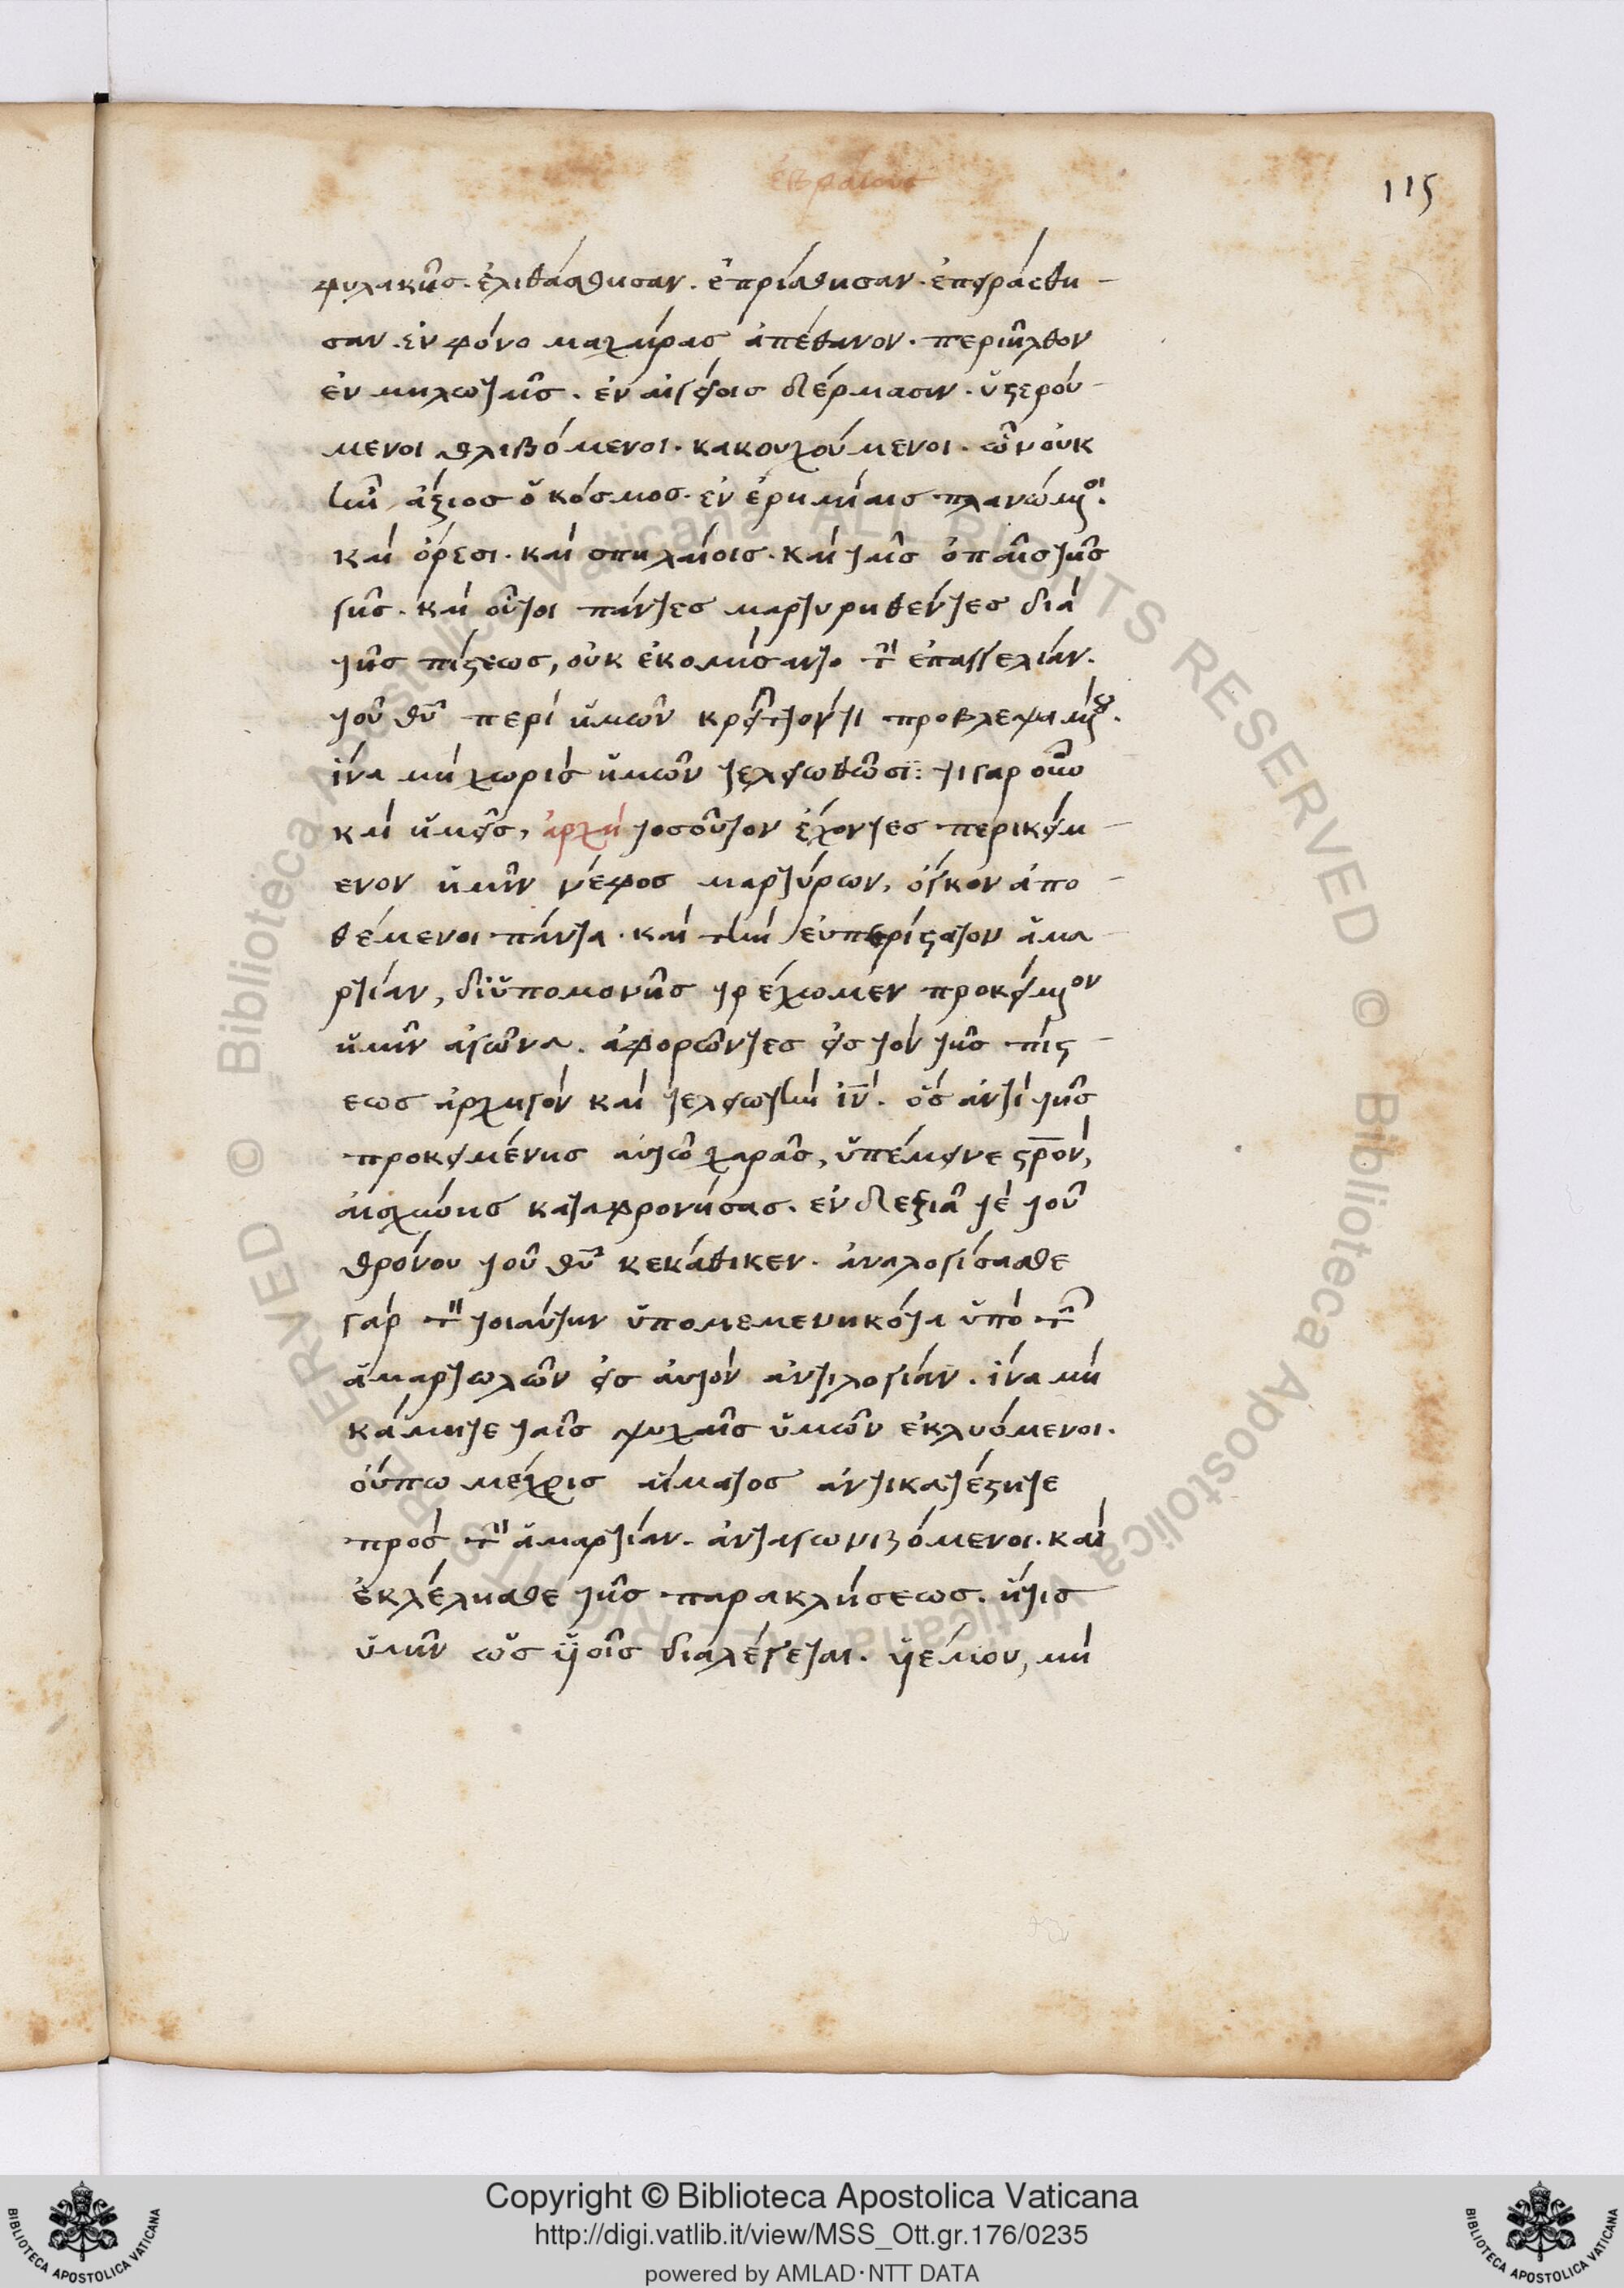 ἑβραίους
115
φυλακῆς. ἐλιθάσθησαν. ἐπρίσθησαν. ἐπειράσθη-
σαν. ἐν φόνο μαχαίρας ἀπέθανον. περιῆλθον
ἐν μηλωταῖς. ἐν αἰγείοις δέρμασιν. ὑστερού-
μενοι θλιβόμενοι. κακουχούμενοι. ὧν οὐκ
ἦν ἄξιος ὁ κόσμος. ἐν ἐρημίαις πλανώμενοι.
καὶ ὄρεσι. καὶ σπηλαίοις. καὶ ταῖς ὀπαῖς τῆς
γῆς. καὶ οὗτοι πάντες μαρτυρηθέντες διὰ
τῆς πίστεως, οὐκ ἐκομίσαντο τὴν ἐπαγγελίαν.
τοῦ θῦ περὶ ἡμῶν κρεῖττόν τι προβλεψαμένου.
ἵνα μὴ χωρὶς ἡμῶν τελειωθῶσι: τιγαροῦν
καὶ ἡμεῖς, ἀρχὴ τοσοῦτον ἔχοντες περικείμ-
ενον ἡμῖν νέφος μαρτύρων, ὄγκον ἀπο-
θέμενοι πάντα. καὶ τὴν εὐπερίστατον ἁμα-
ρτίαν, δι ὑπομονῆς τρέχωμεν προκείμενον
ἡμῖν ἀγῶνα. ἀφορῶντες εἰς τὸν τῆς πίστ-
εως ἀρχηγὸν καὶ τελειωτὴν ἰν. ὃς ἀντὶ τῆς
προκειμένης αὐτῶ χαρᾶς, ὑπέμεινε στρον,
αἰσχύνης καταφρονήσας. ἐν δεξιᾶ τὲ τοῦ
θρόνου τοῦ θῦ κεκάθικεν. ἀναλογίσασθε
γὰρ τὴν τοιαύτην ὑπομεμενηκότα ὑπὸ τῶν
ἁμαρτωλῶν εἰς αὐτὸν ἀντιλογίαν. ἵνα μὴ
κάμητε ταῖς ψυχαῖς ὑμῶν ἐκλυόμενοι.
οὔπω μέχρις αἵματος ἀντικατέστητε
πρὸς τὴν ἁμαρτίαν. ἀνταγωνιζόμενοι. καὶ
ἐκλέλησθε τῆς παρακλήσεως. ἥτις
ὑμῖν ὡς υἱοῖς διαλέγεται. υἱέ μου, μὴ
Copyright © Biblioteca Apostolica Vaticana
http://digi.vatlib.it/view/MSS_Ott.gr.176/0235
powered by AMLAD·NTT DATA